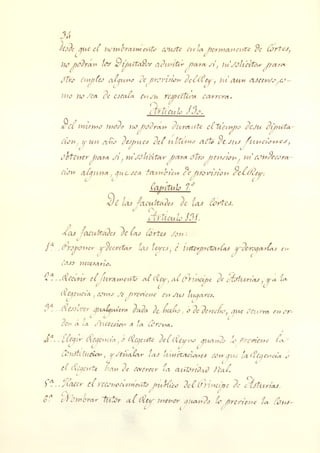 34
desde que el nombramiento conste en la permanente de Cortes,
no podrán los Diputados admitir para sí, ni solicitar para
otro empleo alguno de provision del Rey, ni aun ascenso, co-
mo no sea de escala en su respectiva carrera.
Artículo 130.
Del mismo modo no podrán durante el tiempo de su diputa-
cion, y un año despues del ultimo acto de sus funciones,
obtener para sí, ni solicitar para otro pension, ni condecora-
cion alguna, que sea tambien de provision del Rey.
Capítulo 7º
De las facultades de las Cortes.
Artículo 131.
Las facultades de las Cortes son:
1ª. Proponer y decretar las leyes, é interpretarlas y derogarlas en
caso necesario.
2ª. Recibir el juramento al Rey, al Príncipe de Asturias, y á la
Regencia, como se previene en sus lugares.
3ª. Resolver qualquiera duda de hecho, ó de derecho, que ocurra en or-
den á la succesion á la Corona.
4ª. Elegir Regencia, ó Regente del Reyno quando lo previene la
Constitucion, y señalar las limitaciones con que la Regencia ó
el Regente han de exercer la autoridad Real.
5ª. Hacer el reconocimiento publico del Príncipe de Asturias.
6ª. Nombrar tutor al Rey menor quando lo previene la Cons-